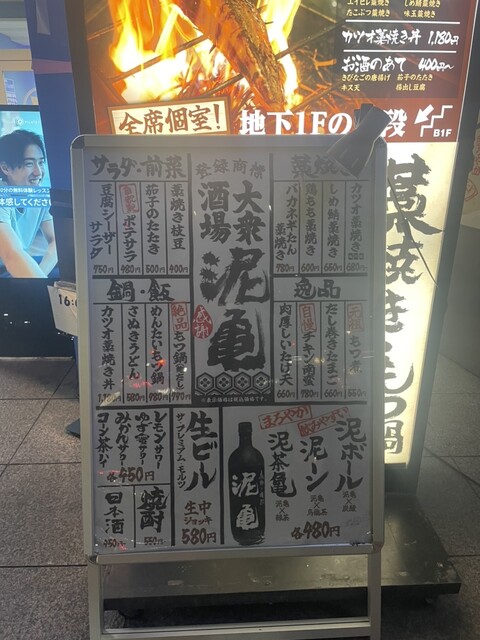 エイヒレ藁焼き
しめ鯖藁焼き
たこぶつ藁焼き
味玉藁焼き
カツオ藁焼き丼 1,180円
お酒のあて 400円〜
きびなごの唐揚げ 茄子のたたき
キス天 揚出し豆腐
全席個室!
地下1Fの
段
B1F
藁焼き もつ鍋
体感してくださ
サラダ・前菜
藁焼き枝豆 400円
茄子のたたき 500円
ポテサラ 480円
豆腐シーザーサラダ 750円
登録商標
大衆酒場
泥亀
感謝
藁焼
カツオ藁焼き
しめ鯖藁焼き 660円
鶏もも藁焼き 600円
バカネギたん藁焼き 780円
鍋・飯
絶品 もつ鍋 790円
めんたいもつ鍋 980円
さぬきうどん 580円
カツオ藁焼き丼 1,180円
逸品
元祖 もつ煮 550円
だし巻きたまご 660円
自慢 チキン南蛮 780円
肉厚しいたけ天 660円
生ビール
ザ・プレミアム・モルツ
生中
ジョッキ
580円
レモンサワー
ゆず蜜サワー
みかんサワー
コーン茶ハイ
各450円
焼酎 550円
日本酒 450円
まろやか!
飲みやすい!
泥ボール
泥亀×炭酸
泥ーン
泥亀×烏龍茶
泥茶亀
泥亀×緑茶
各480円
泥亀